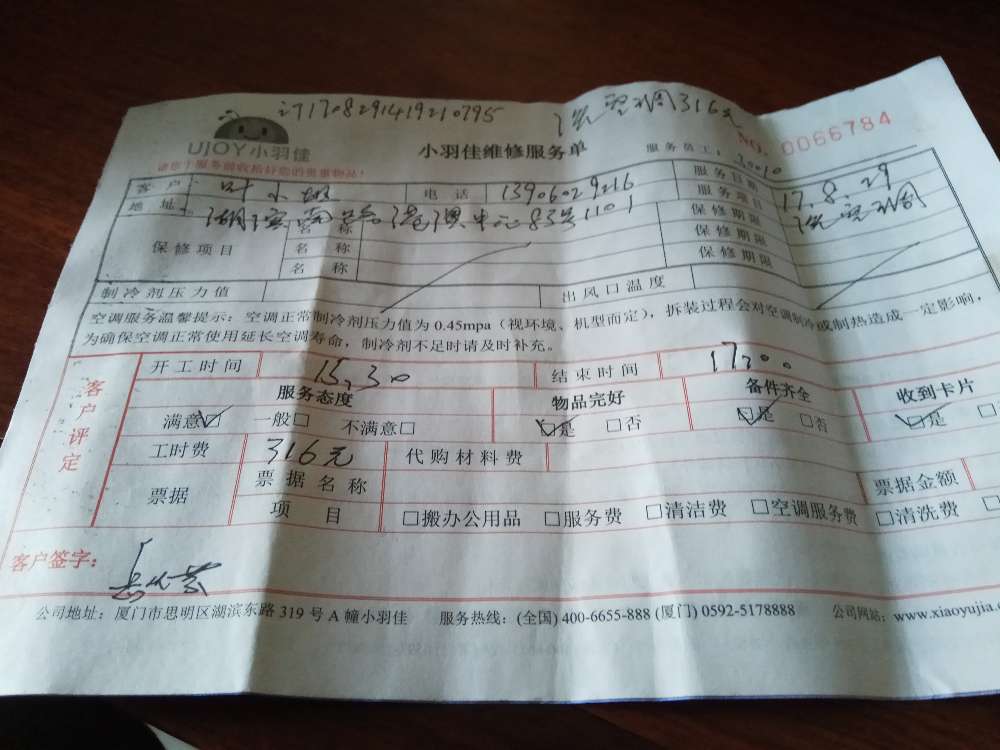 订1708291419210795 洗空调316元
UJOY小羽佳 小羽佳维修服务单 服务员工: 20010 NO. 0066784
请您于服务前收拾好您的贵重物品!
客户 叶小姐 电话 13906029216 服务日期 17.8.29
地址 湖滨南路港澳中心83号1101 服务项目 洗空调
保修项目 名称 保修期限
名称 保修期限
名称 保修期限
制冷剂压力值 出风口温度
空调服务温馨提示:空调正常制冷剂压力值为 0.45mpa(视环境、机型而定),拆装过程会对空调制冷或制热造成一定影响,
为确保空调正常使用延长空调寿命,制冷剂不足时请及时补充。
客户评定
开工时间 15:30 结束时间 17:00
服务态度 物品完好 备件齐全 收到卡片
满意☑ 一般□ 不满意□ ☑是 □否 ☑是 □否 ☑是 □
工时费 316元 代购材料费
票据 票据名称 票据金额
项目 □搬办公用品 □服务费 □清洁费 □空调服务费 □清洗费 □
客户签字:
公司地址:厦门市思明区湖滨东路 319 号 A 幢小羽佳 服务热线:(全国) 400-6655-888 (厦门) 0592-5178888 公司网站:www.xiaoyujia.